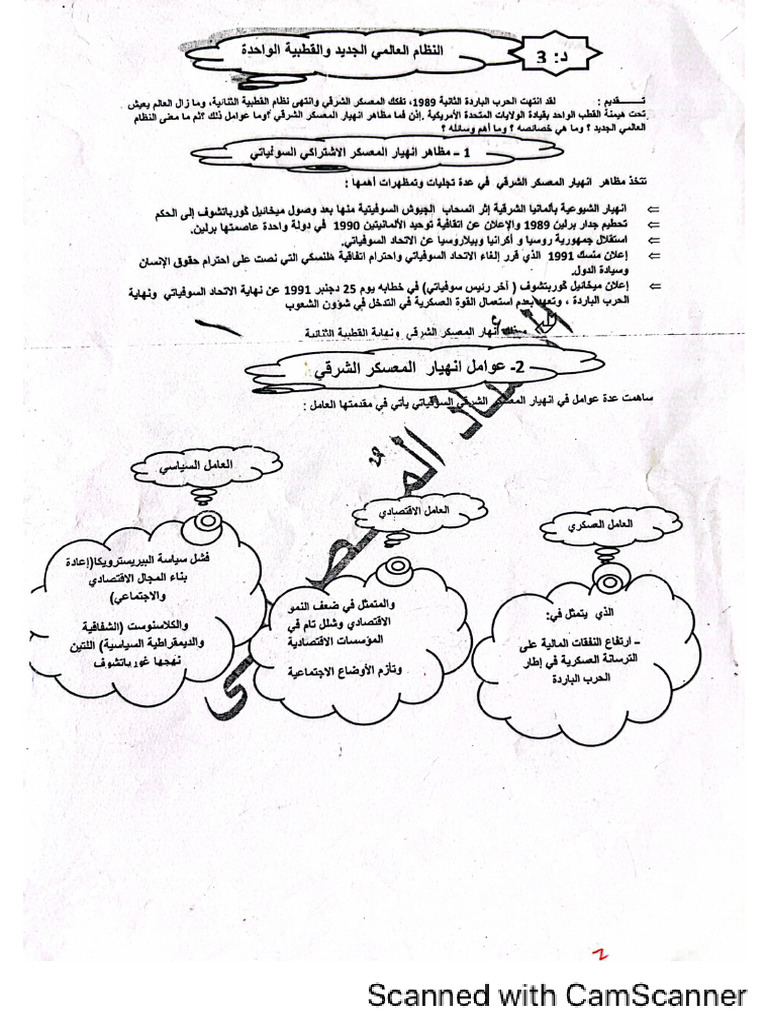 د: 3
النظام العالمي الجديد والقطبية الواحدة
تـــــقديم : لقد انتهت الحرب الباردة الثانية 1989، تفكك المعسكر الشرقي وانتهى نظام القطبية الثنائية، وما زال العالم يعيش
تحت هيمنة القطب الواحد بقيادة الولايات المتحدة الأمريكية. إذن فما مظاهر انهيار المعسكر الشرقي ؟وما عوامل ذلك ؟ثم ما معنى النظام
العالمي الجديد ؟ وما هي خصائصه ؟ وما أهم وسائله ؟
1 – مظاهر انهيار المعسكر الاشتراكي السوفياتي
تتخذ مظاهر انهيار المعسكر الشرقي في عدة تجليات وتمظهرات أهمها :
⇐ انهيار الشيوعية بألمانيا الشرقية إثر انسحاب الجيوش السوفيتية منها بعد وصول ميخائيل كورباتشوف إلى الحكم
⇐ تحطيم جدار برلين 1989 والإعلان عن اتفاقية توحيد الألمانيتين 1990 في دولة واحدة عاصمتها برلين.
⇐ استقلال جمهورية روسيا و أكرانيا وبيلاروسيا عن الاتحاد السوفياتي.
⇐ إعلان منسك 1991 الذي قرر إلغاء الاتحاد السوفياتي واحترام اتفاقية هلنسكي التي نصت على احترام حقوق الإنسان
وسيادة الدول.
⇐ إعلان ميخائيل كوربتشوف ( آخر رئيس سوفياتي) في خطابه يوم 25 دجنبر 1991 عن نهاية الاتحاد السوفياتي ونهاية
الحرب الباردة ، وتعهد بعدم استعمال القوة العسكرية في التدخل في شؤون الشعوب
أنهار المعسكر الشرقي ونهاية القطبية الثنائية
2- عوامل انهيار المعسكر الشرقي
ساهمت عدة عوامل في انهيار المعسكر الشرقي السوفياتي يأتي في مقدمتها العامل :
العامل العسكري
الذي يتمثل في:
– ارتفاع النفقات المالية على
الترسانة العسكرية في إطار
الحرب الباردة
العامل الاقتصادي
والمتمثل في ضعف النمو
الاقتصادي وشلل تام في
المؤسسات الاقتصادية
وتأزم الأوضاع الاجتماعية
العامل السياسي
فشل سياسة البيريسترويكا(إعادة
بناء المجال الاقتصادي
والاجتماعي)
والكلاسنوست (الشفافية
والديمقراطية السياسية) اللتين
نهجها غورباتشوف
2
Scanned with CamScanner